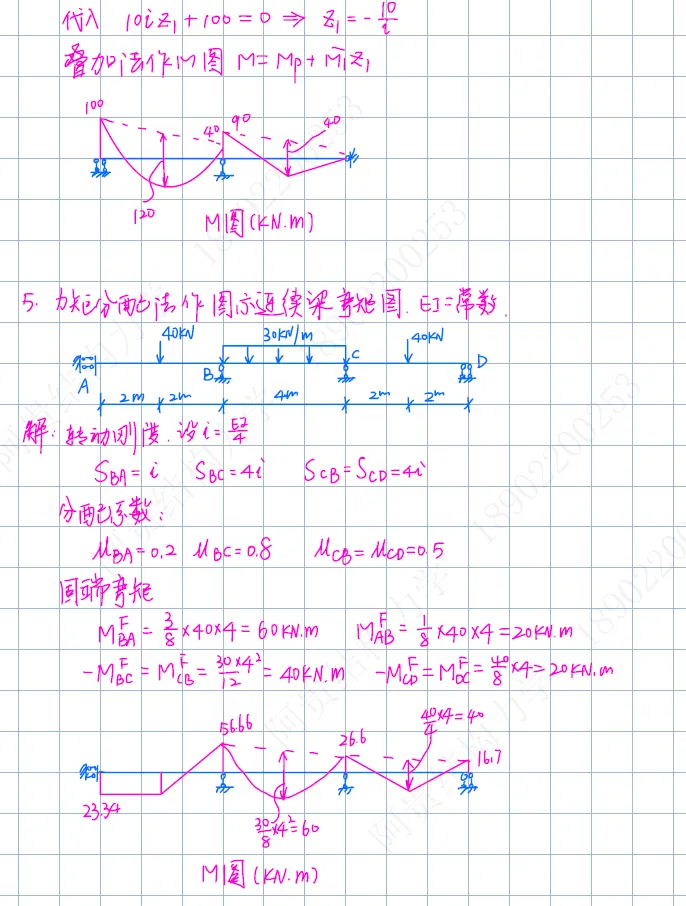 代入 10iZ₁+100=0 ⇒ Z₁=-10/i
叠加法作M图 M=Mp+M̄₁Z₁
100
40
90
40
120
M图(KN.m)
5. 力矩分配法作图示连续梁弯矩图. EI=常数.
40KN
30KN/m
40KN
A
B
C
D
2m
2m
4m
2m
2m
解: 转动刚度. 设i=EI/4
S_BA=i S_BC=4i S_CB=S_CD=4i
分配系数:
μ_BA=0.2 μ_BC=0.8 μ_CB=μ_CD=0.5
固端弯矩
M^F_BA=3/8×40×4=60KN.m M^F_AB=1/8×40×4=20KN.m
-M^F_BC=M^F_CB=30×4²/12=40KN.m -M^F_CD=M^F_DC=40/8×4=20KN.m
56.66
26.6
40/4×4=40
16.7
23.34
30/8×4²=60
M图(KN.m)
阿贤结构力学 18902200253